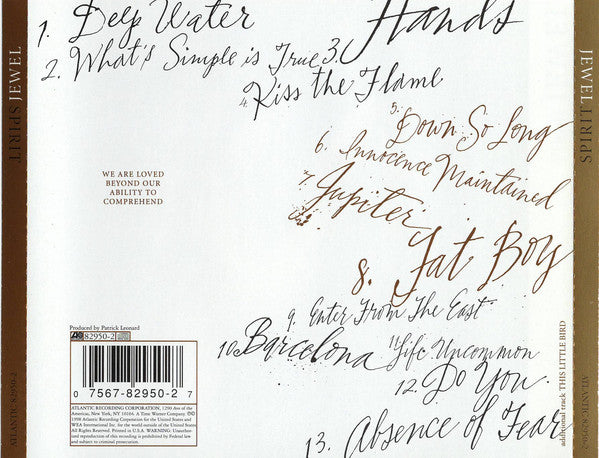 JEWEL
SPIRIT
1. Deep Water
2. What's Simple is True
3. Hands
4. Kiss the Flame
5. Down So Long
6. Innocence Maintained
7. Jupiter
8. Fat Boy
9. Enter From The East
10. Barcelona
11. Life Uncommon
12. Do You
13. Absence of Fear
WE ARE LOVED
BEYOND OUR
ABILITY TO
COMPREHEND
Produced by Patrick Leonard
82950-2
0 7567-82950-2 7
ATLANTIC RECORDING CORPORATION, 1290 Ave of the
Americas, New York, NY 10104. A Time Warner Company.
©1998 Atlantic Recording Corporation for the United States and
WEA International Inc. for the world outside of the United States.
All Rights Reserved. Printed in U.S.A. WARNING: Unauthor-
ized reproduction of this recording is prohibited by Federal law
and subject to criminal prosecution.
ATLANTIC 82950-2
additional track THIS LITTLE BIRD
JEWEL
SPIRIT
ATLANTIC 82950-2